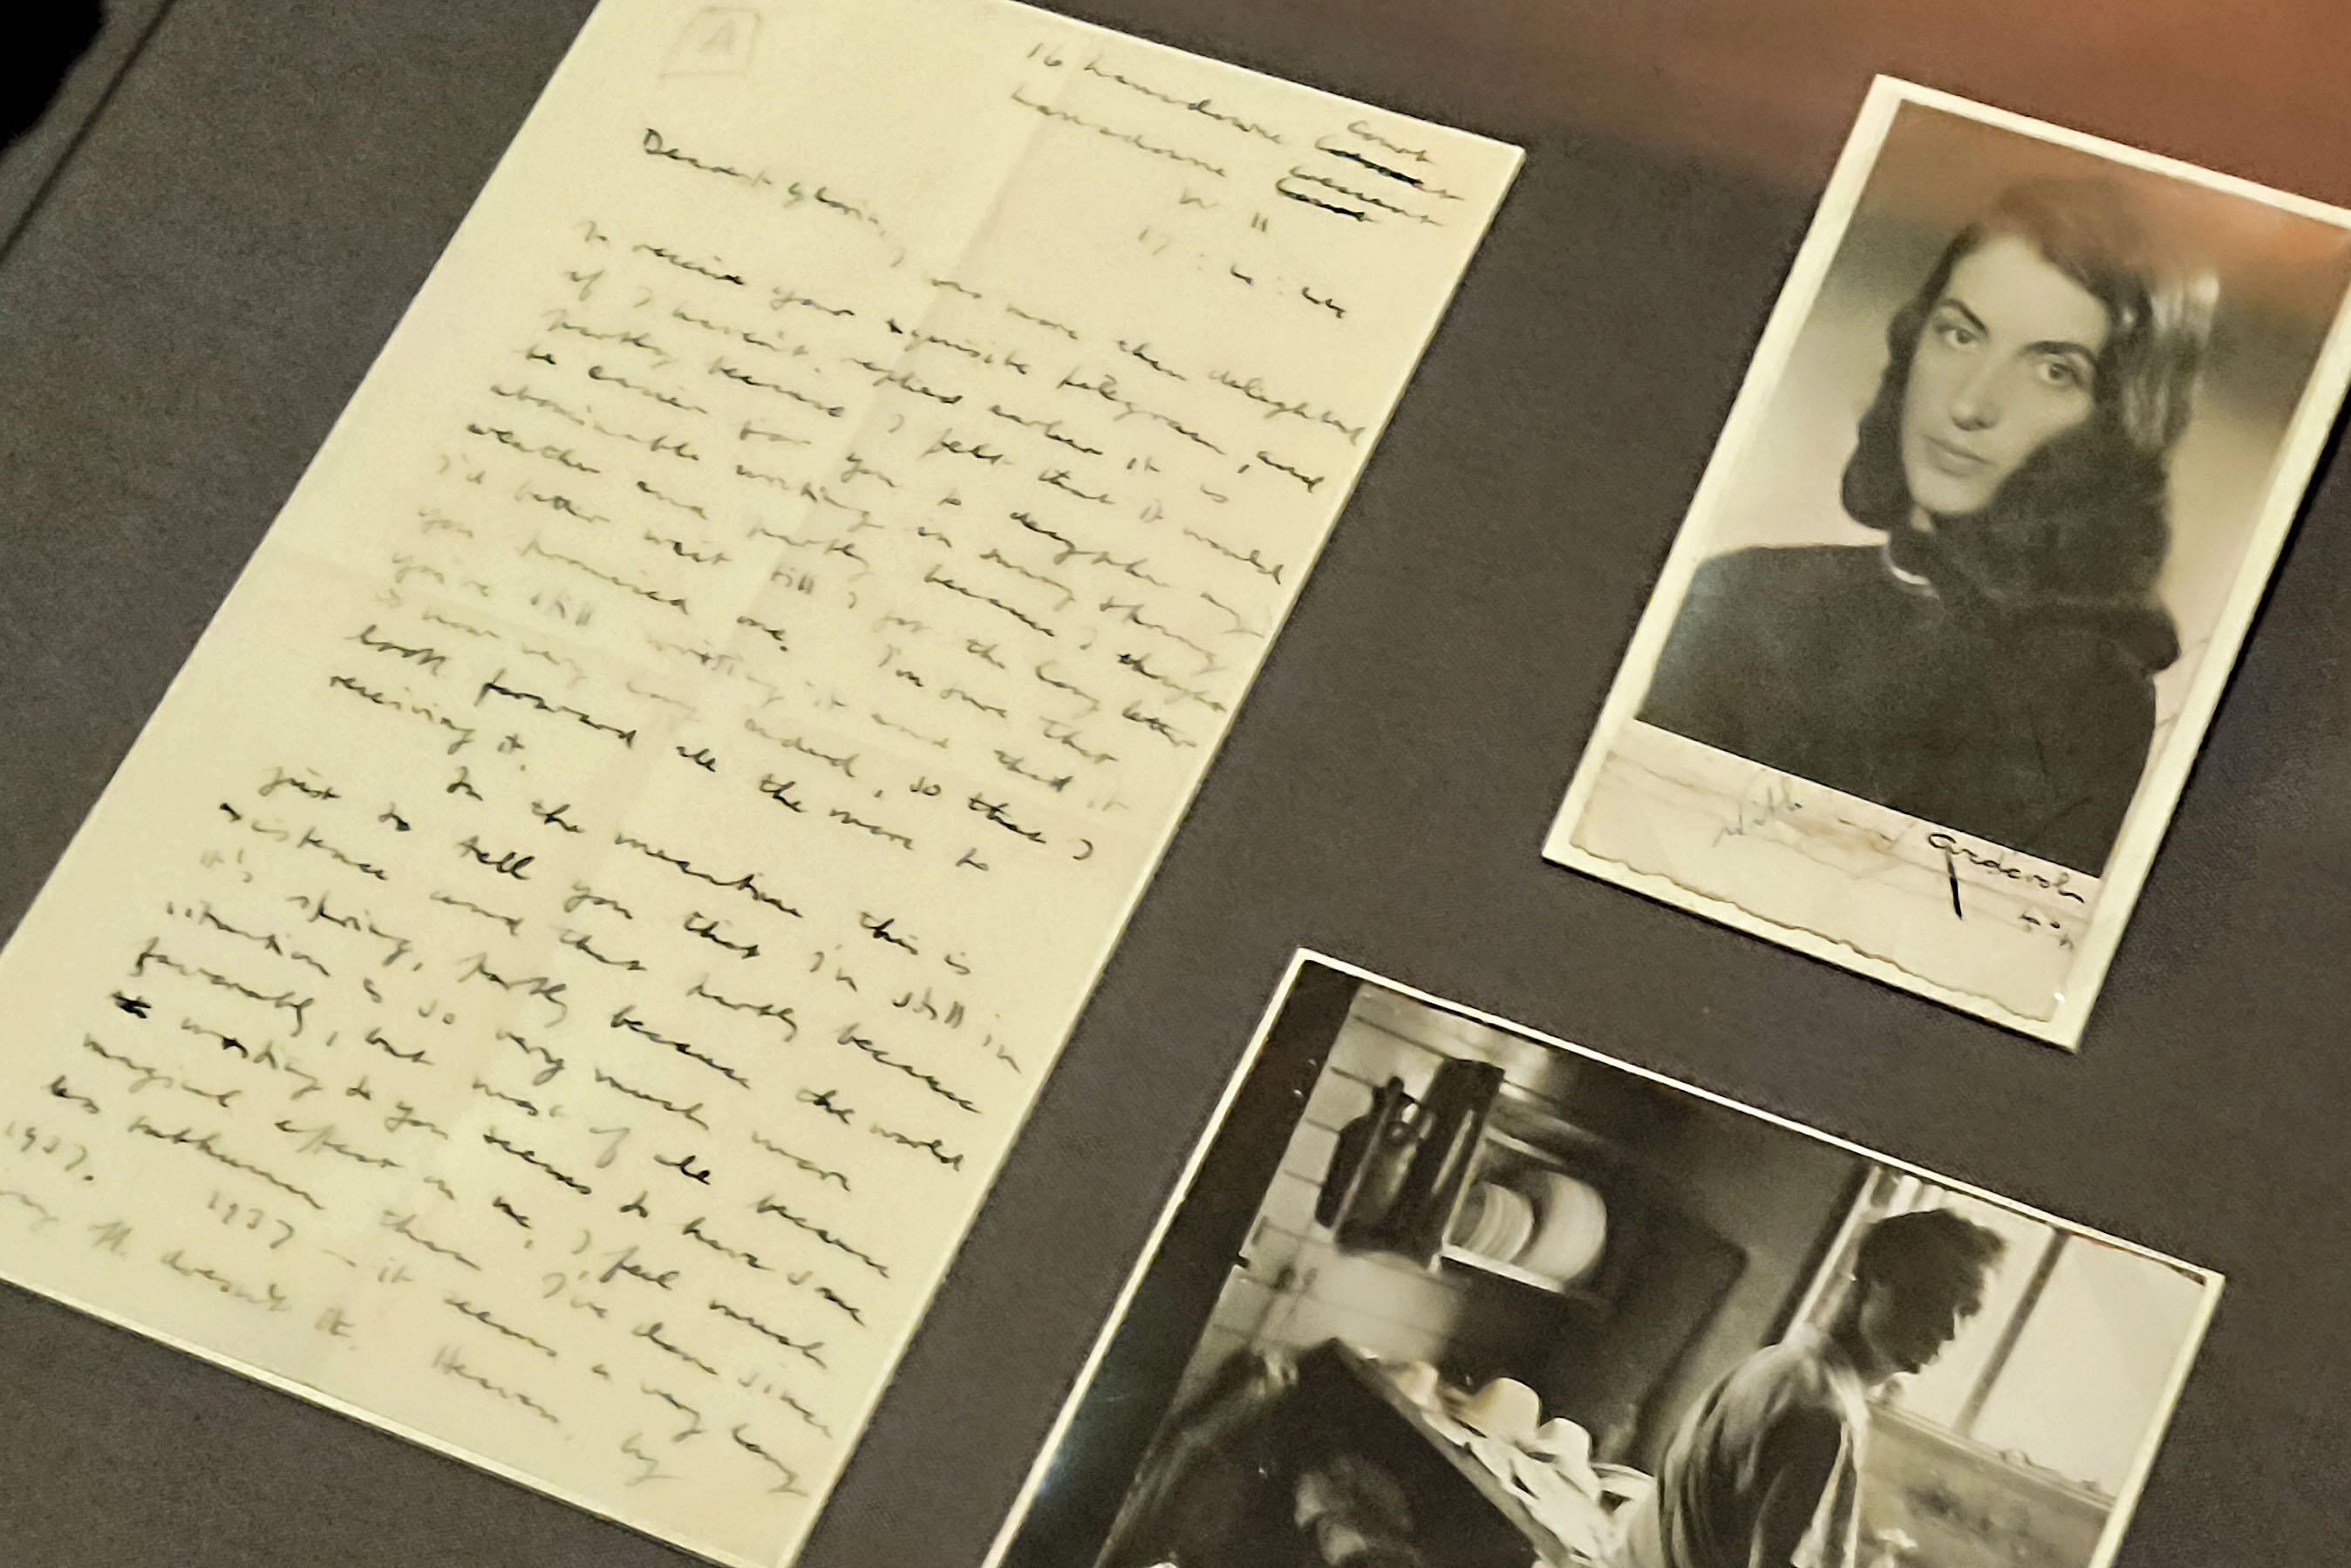 A
16 Lansdowne Court
Lansdowne Crescent
W 11
17 : 4 : 44
Dearest Gloria,
I was more than delighted
to receive your exquisite telegram, and
if I haven't replied earlier it is
partly because I felt that it would
be easier for you to decypher my
abominable writing in sunny spring
weather and partly because I thought
I'd better wait till I got the long letter
you promised me. I'm sure that
you're still writing it and that it
is now very long indeed, so that I
look forward all the more to
receiving it.
In the meantime this is
just to tell you that I'm still in
existence and that partly because
it's spring, partly because the world
situation is so very much more
favourably, but most of all because
writing to you seems to have some
magical effect on me, I feel much
less subhuman than I've done since
1937. 1937 — it seems a very long
way off doesn't it. Heavens, by
With